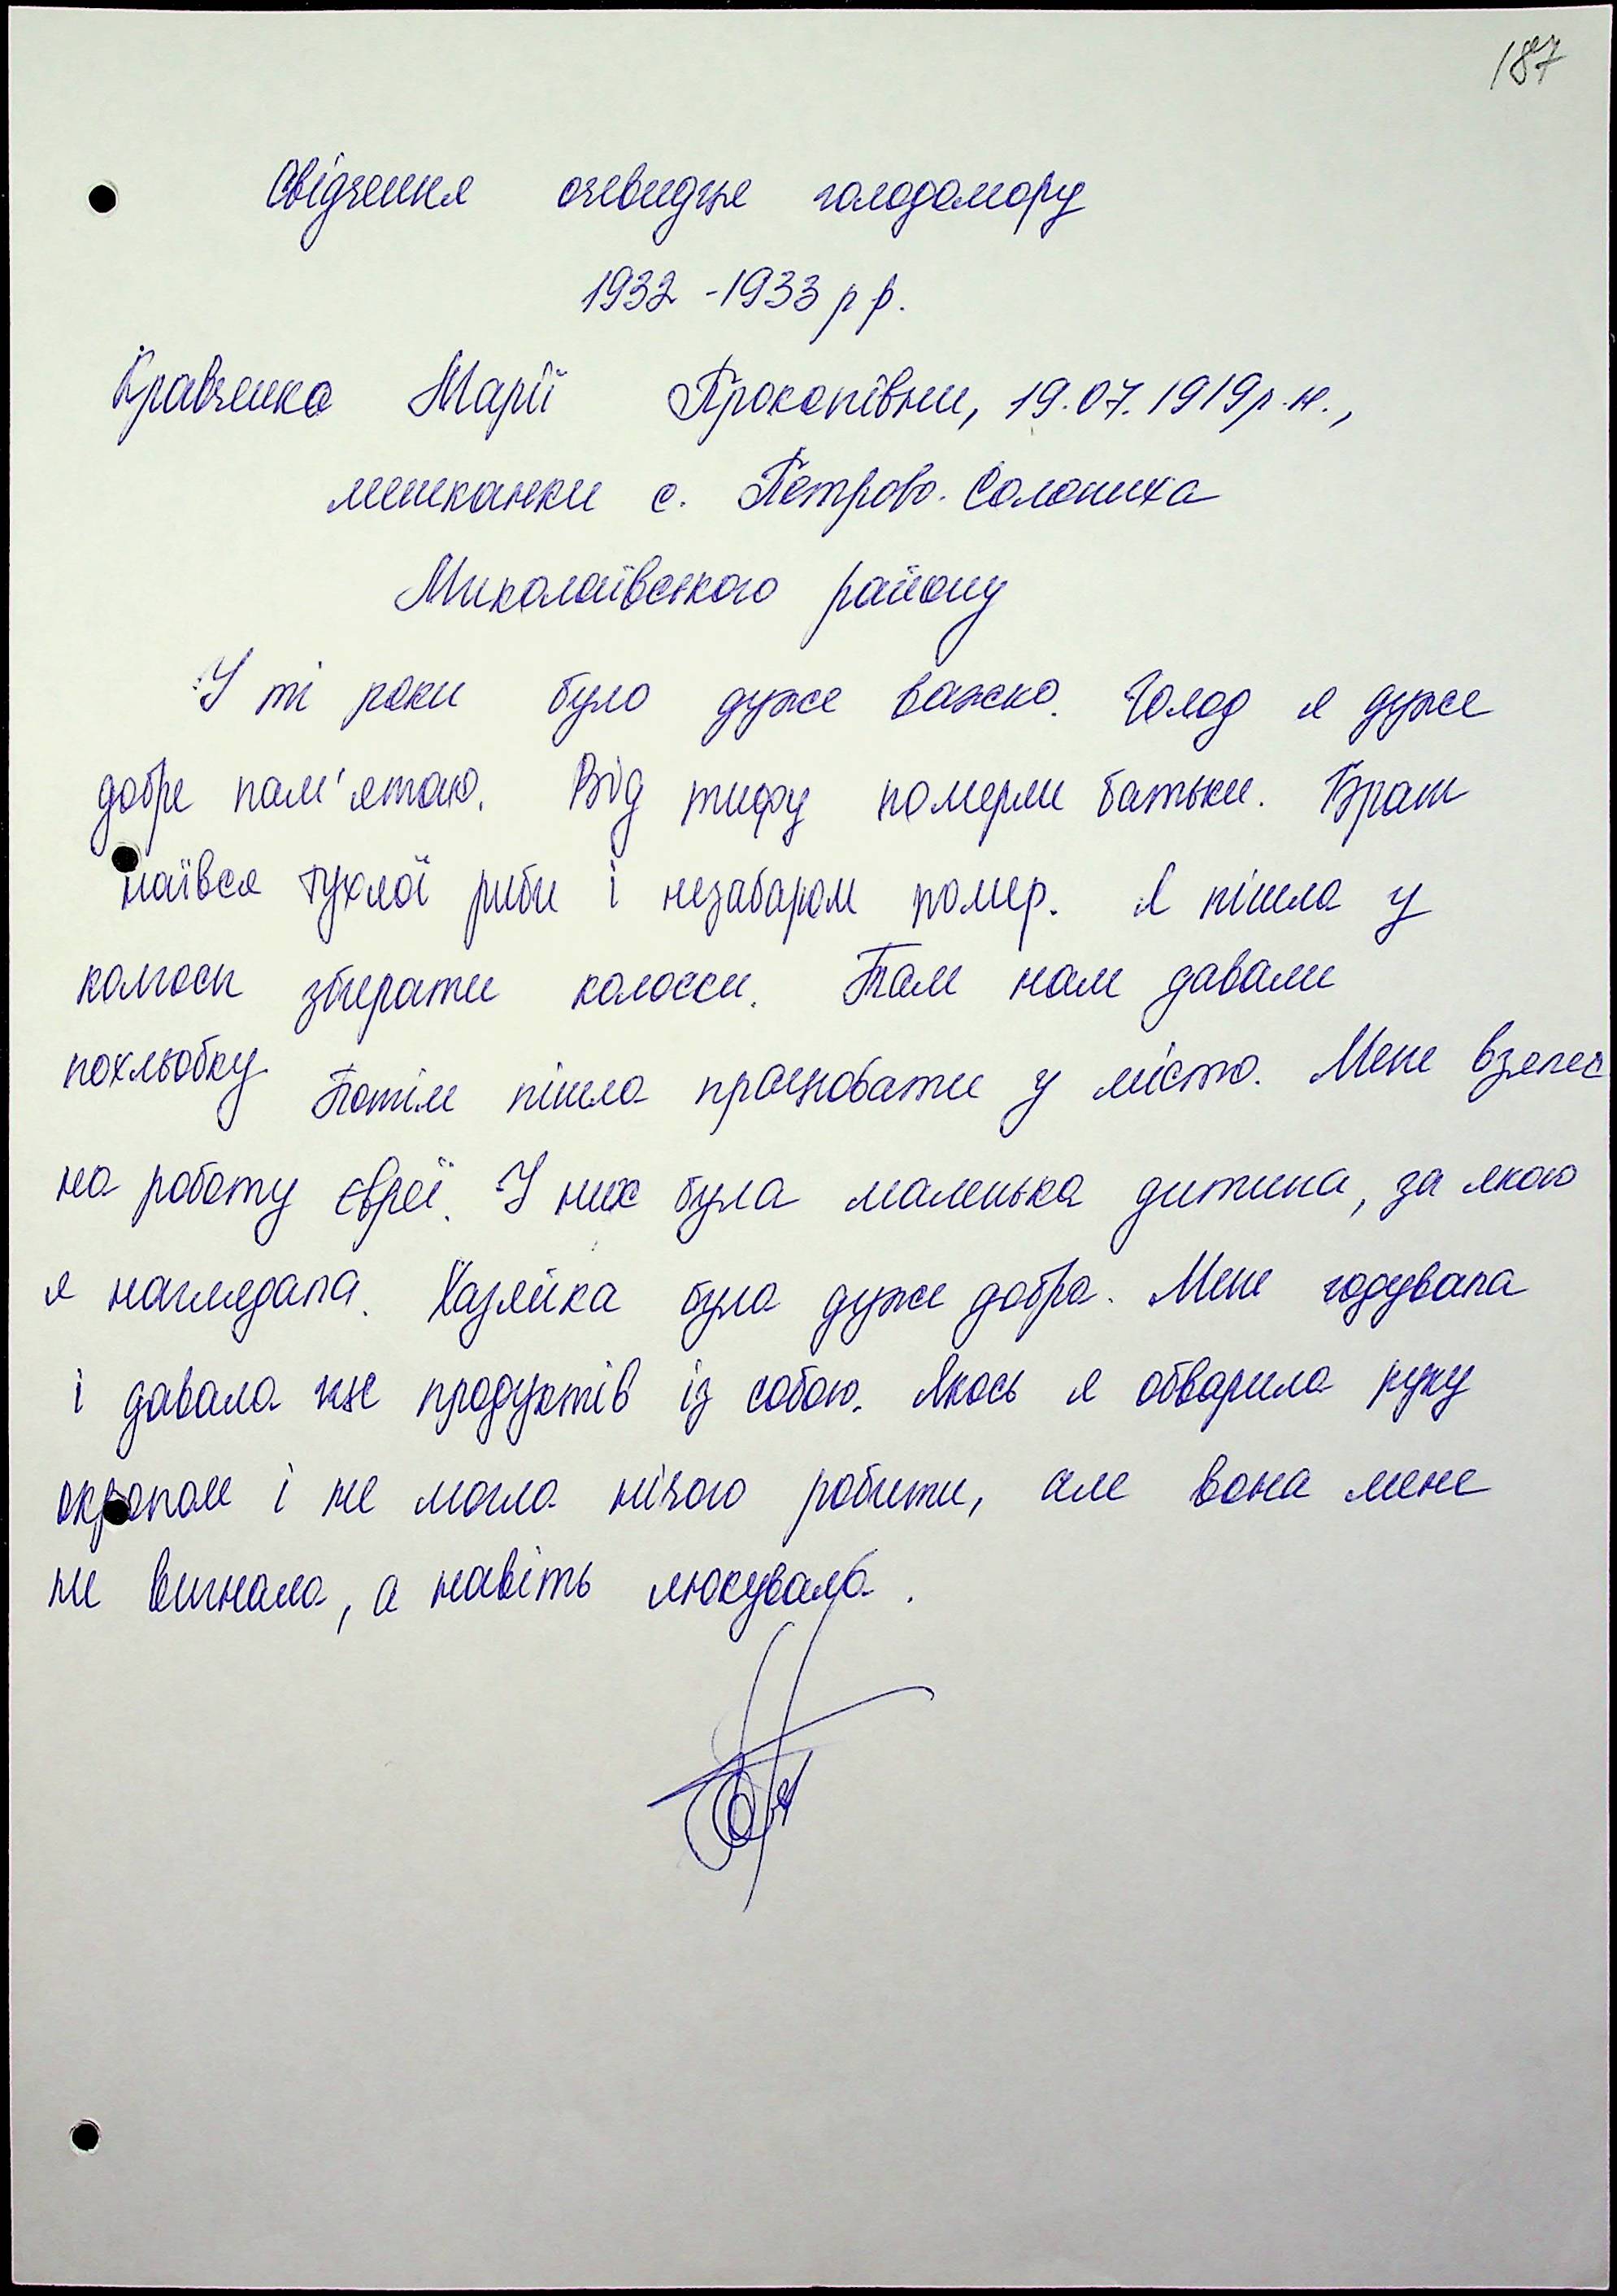 187
Свідчення очевидця голодомору
1932 -1933 рр.
Кравченко Марії Прокопівни, 19.07.1919р.н.,
мешканки с. Петрово-Солониха
Миколаївського району
У ті роки було дуже важко. Голод я дуже
добре пам'ятаю. Від тифу померли батьки. Брат
наївся тухлої риби і незабаром помер. Я пішла у
колгосп збирати колоски. Там нам давали
похльобку. Потім пішла працювати у місто. Мене взяли
на роботу євреї. У них була маленька дитина, за якою
я наглядала. Хазяйка була дуже добра. Мене годувала
і давала ще продуктів із собою. Якось я обварила руку
окропом і не могла нічого робити, але вона мене
не вигнала, а навіть лікувала.